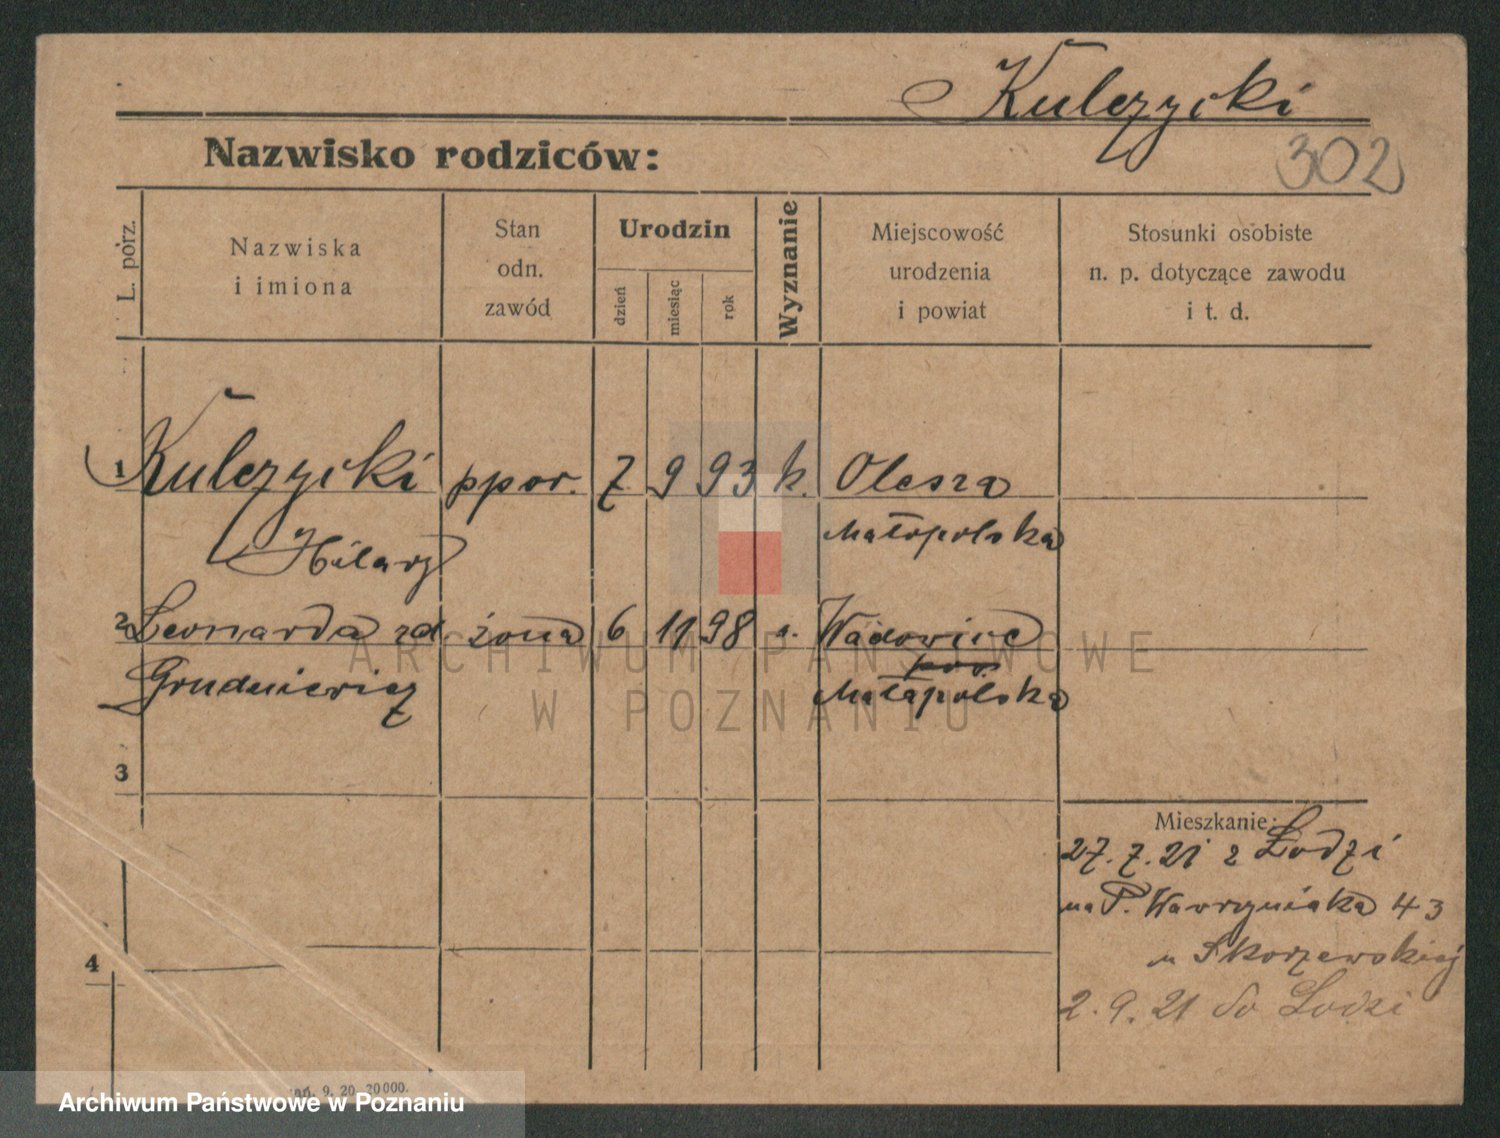 Kulczycki
302
Nazwisko rodziców:
L. porz.
Nazwiska
i imiona
Stan
odn.
zawód
Urodzin
dzień
miesiąc
rok
Wyznanie
Miejscowość
urodzenia
i powiat
Stosunki osobiste
n. p. dotyczące zawodu
i t. d.
1 Kulczycki ppor. 7 9 93 k. Olesza
Hilary Małopolska
2 Leonarda zd żona 6 11 98 Wadowice
Grudniewicz pow.
Małapolska
3
4
Mieszkanie:
27.7.21 z Łodzi
na P. Wawrzyniaka 43
u Skorzewskiej
2.9.21 do Łodzi
9. 20. 20000.
ARCHIWUM PAŃSTWOWE
W POZNANIU
Archiwum Państwowe w Poznaniu